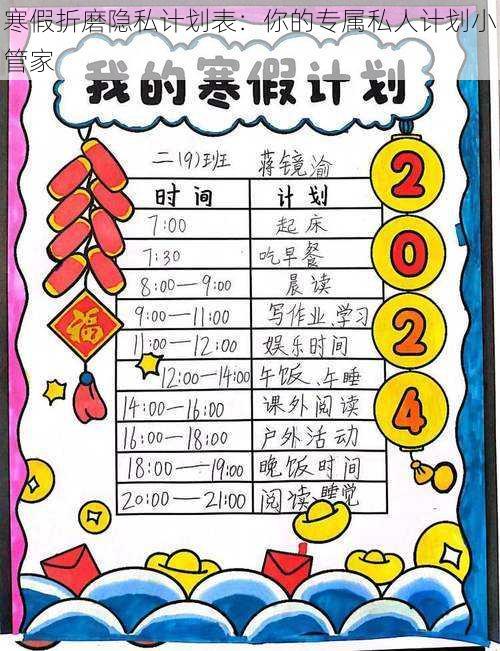 寒假折磨隐私计划表：你的专属私人计划小
管家
我的寒假计划
二(9)班 蒋镜渝
时间 计划
7:00 起床
7:30 吃早餐
8:00—9:00 晨读
9:00—11:00 写作业、学习
11:00—12:00 娱乐时间
12:00—14:00 午饭、午睡
14:00—16:00 课外阅读
16:00—18:00 户外活动
18:00—19:00 晚饭时间
20:00—21:00 阅读、睡觉
2024
福